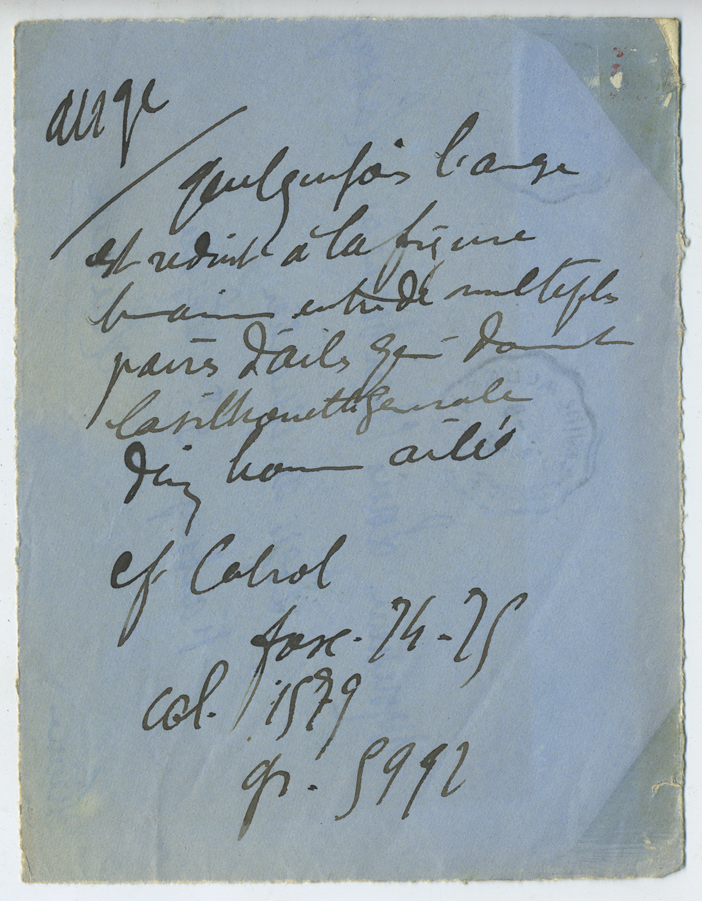 ange
quelquefois l'ange
est réduit à la figure
humaine entre de multiples
paires d'ailes qui donnent
la silhouette générale
d'un homme ailé
cf Cabrol
fasc. 74-75
col. 1579
gr. 5992